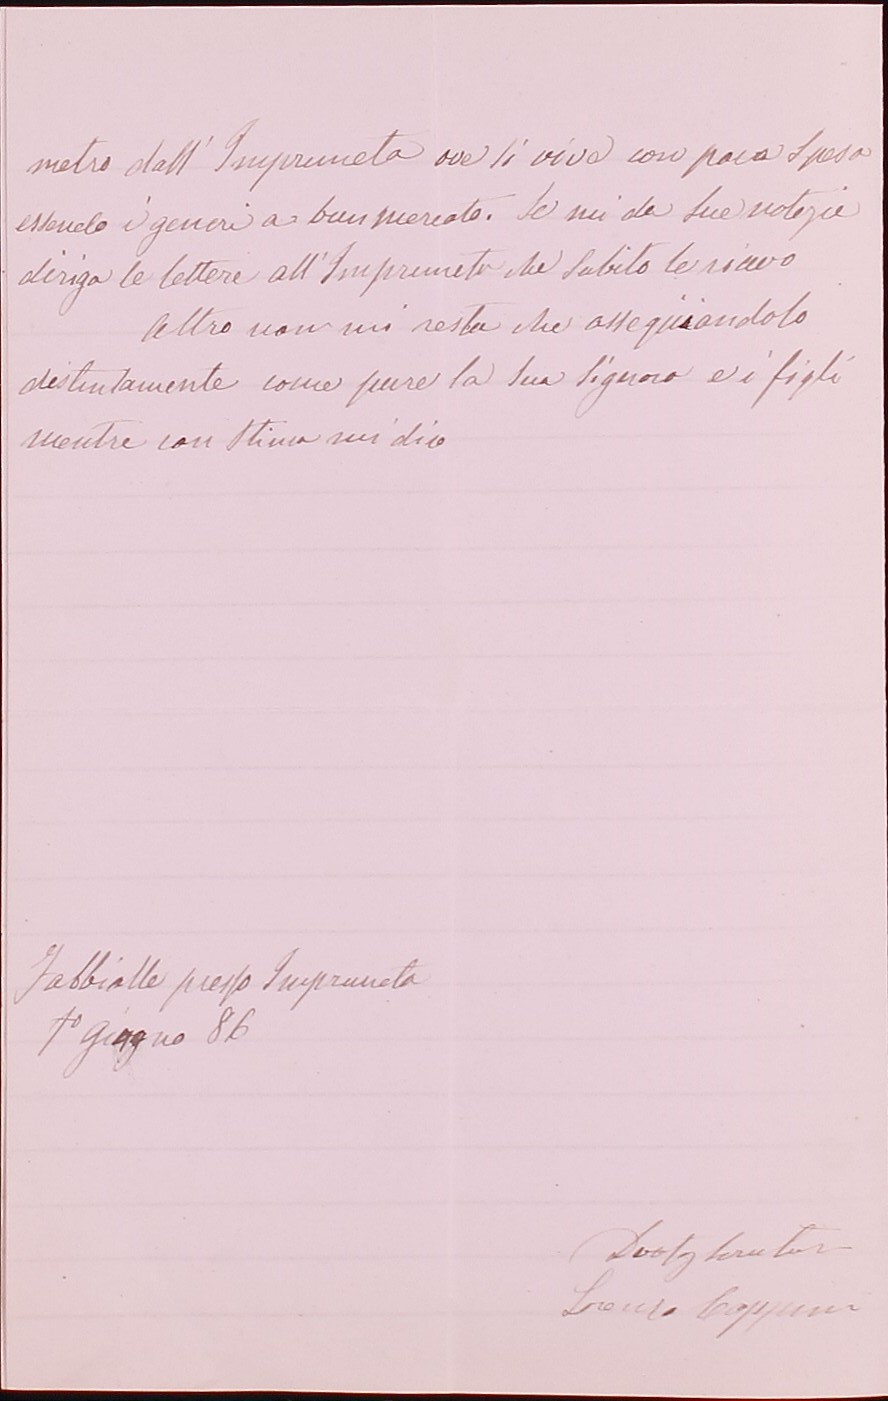 metro dall'Impruneta ove si vive con poca spesa
essendo i generi a buon mercato. Se mi da sue notizie
diriga le lettere all'Impruneta che subito le ricevo
Altro non mi resta che ossequiandolo
distintamente come pure la sua Signora e i figli
mentre con stima mi dico
presso Impruneta
1° Giugno 86
Servitor
Lorenzo Coppini